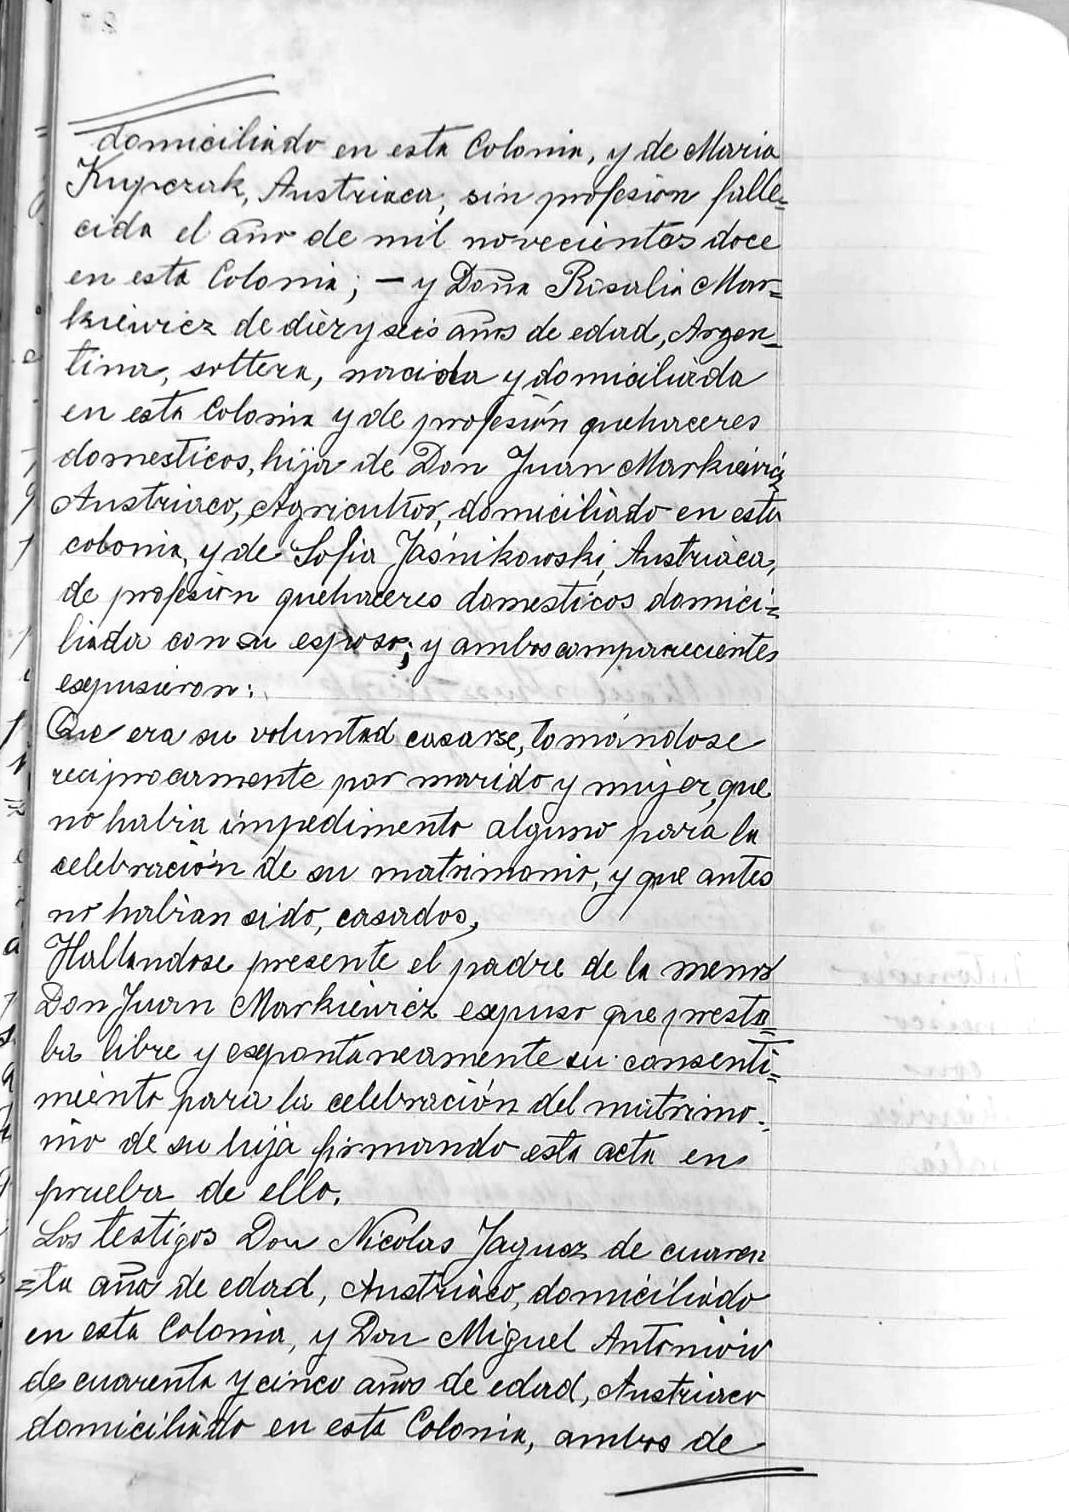 domiciliado en esta Colonia, y de Maria
Kupczak, Austriaca, sin profesión falle=
cida el año de mil novecientos doce
en esta Colonia; — y Doña Rosalia Mar=
kiewicz de diez y seis años de edad, Argen=
tina, soltera, nacida y domiciliada
en esta Colonia y de profesión quehaceres
domesticos, hija de Don Juan Markiewicz
Austriaco, Agricultor, domiciliado en esta
colonia, y de Sofia Jaśnikowski, Austriaca,
de profesión quehaceres domesticos domici=
liada con su esposo; y ambos comparecientes
expusieron:
Que era su voluntad casarse, tomándose
reciprocamente por marido y mujer, que
no habia impedimento alguno para la
celebración de su matrimonio, y que antes
no habian sido, casados,
Hallandose presente el padre de la menor
Don Juan Markiewicz expuso que presta=
ba libre y espontaneamente su consenti=
miento para la celebración del matrimo-
nio de su hija firmando esta acta en
prueba de ello.
Los testigos Don Nicolas Jagusz de cuaren
=ta años de edad, Austriaco, domiciliado
en esta Colonia, y Don Miguel Antoniow
de cuarenta y cinco años de edad, Austriaco
domiciliado en esta Colonia, ambos de